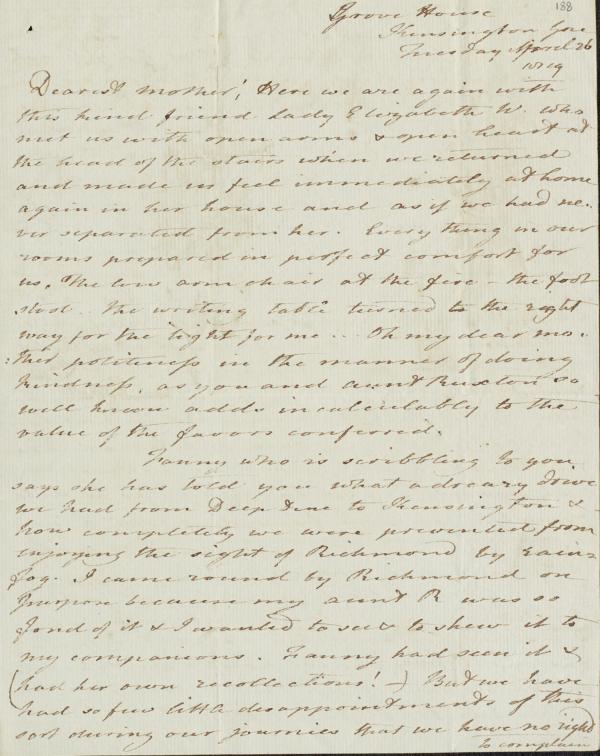 188
Grove House
Kensington Gore
Tuesday April 26
1819
Dearest mother! Here we are again with
this kind friend Lady Elizabeth W. who
met us with open arms & open heart at
the head of the stairs when we returned
and made us feel immediately at home
again in her house and as if we had ne-
ver separated from her. Every thing in our
rooms prepared in perfect comfort for
us. The low arm chair at the fire – the foot
stool .. the writing table turned to the right
way for the light for me ... Oh my dear mo-
:ther politeness in the manner of doing
kindness, as you and aunt Ruxton so
well know adds incalculably to the
value of the favors conferred.
Fanny who is scribbling to you
says she has told you what a dreary drive
we had from Deep Dene to Kensington &
how completely we were prevented from
enjoying the sight of Richmond by rain &
fog. I came round by Richmond on
purpose because my aunt R was so
fond of it & I wanted to see & to shew it to
my companions. Fanny had seen it &
(had her own recollections! –) But we have
had so few little disappointments of this
sort during our journies that we have no right
to complain